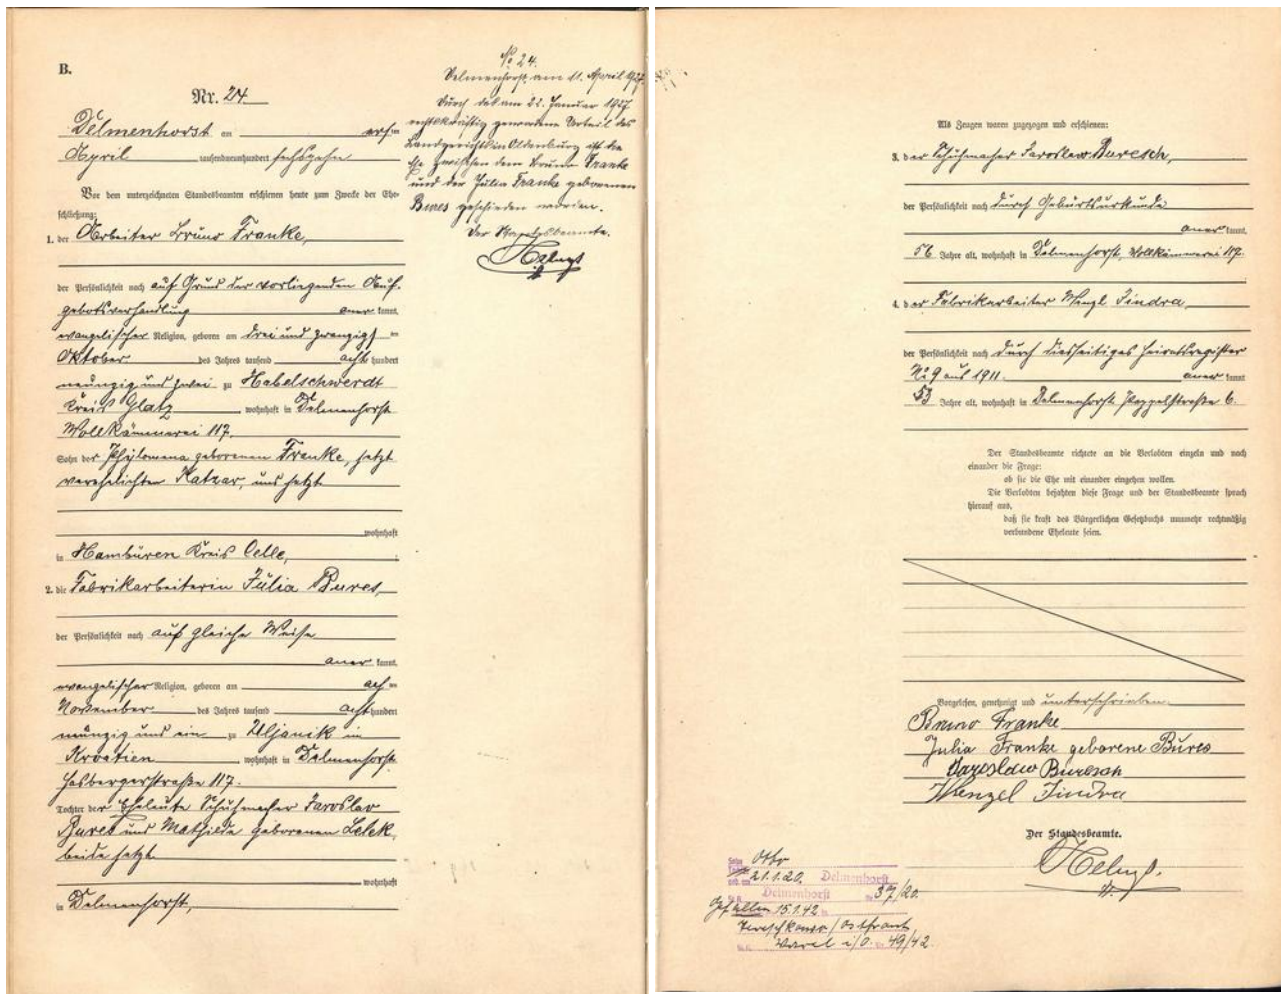 B.
Nr. 24.
Delmenhorst am elf ten
April tausendneunhundert sechszehn
Vor dem unterzeichneten Standesbeamten erschienen heute zum Zwecke der Ehe-
schließung:
1. der Arbeiter Bruno Franke,
der Persönlichkeit nach auf Grund der vorliegenden Auf-
gebotsverhandlung aner kannt,
evangelischer Religion, geboren am drei und zwanzigs ten
Oktober des Jahres tausend acht hundert
neunzig und zwei zu Habelschwerdt
Kreis Glatz, wohnhaft in Delmenhorst
Wollkämmerei 117.
Sohn der Phylomena geborenen Franke, jetzt
verehelichten Katzar, und jetzt
wohnhaft
in Hambüren Kreis Celle,
2. die Fabrikarbeiterin Julia Bures,
der Persönlichkeit nach auf gleiche Weise
aner kannt,
evangelischer Religion, geboren am ach ten
November des Jahres tausend acht hundert
neunzig und ein zu Uljanik in
Kroatien, wohnhaft in Delmenhorst
Hasbergerstraße 117.
Tochter der Eheleute Schuhmacher Jaroslav
Bures und Mathilde geborenen Lelek,
beide jetzt
wohnhaft
in Delmenhorst,
No 24.
Delmenhorst, am 11. April 1927.
Durch das am 22. Januar 1927
rechtskräftig gewordene Urteil des
Landgerichts in Oldenburg ist die
Ehe zwischen dem Bruno Franke
und der Julia Franke geborenen
Bures geschieden worden.
Der Standesbeamte.
Als Zeugen waren zugezogen und erschienen:
3. der Schuhmacher Jaroslaw Buresch,
der Persönlichkeit nach durch Geburtsurkunde
aner kannt,
56 Jahre alt, wohnhaft in Delmenhorst, Wollkämmerei 117.
4. der Fabrikarbeiter Wenzl Jindra,
der Persönlichkeit nach durch diesseitiges Heiratsregister
Nr. 9 aus 1911. aner kannt
53 Jahre alt, wohnhaft in Delmenhorst, Koppelstraße 6.
Der Standesbeamte richtete an die Verlobten einzeln und nach
einander die Frage:
ob sie die Ehe mit einander eingehen wollen.
Die Verlobten bejahten diese Frage und der Standesbeamte sprach
hierauf aus,
daß sie kraft des Bürgerlichen Gesetzbuchs nunmehr rechtmäßig
verbundene Eheleute seien.
Vorgelesen, genehmigt und unterschrieben.
Bruno Franke
Julia Franke geborene Bures
Jareslaw Buresch
Wenzel Jindra
Der Standesbeamte.
Sohn Otto
geb. am 21.1.20. Delmenhorst
Delmenhorst Nr. 37/20.
Gefallen 15.1.42 in
/ Ostfront
Varel i/O. Nr. 49/42.